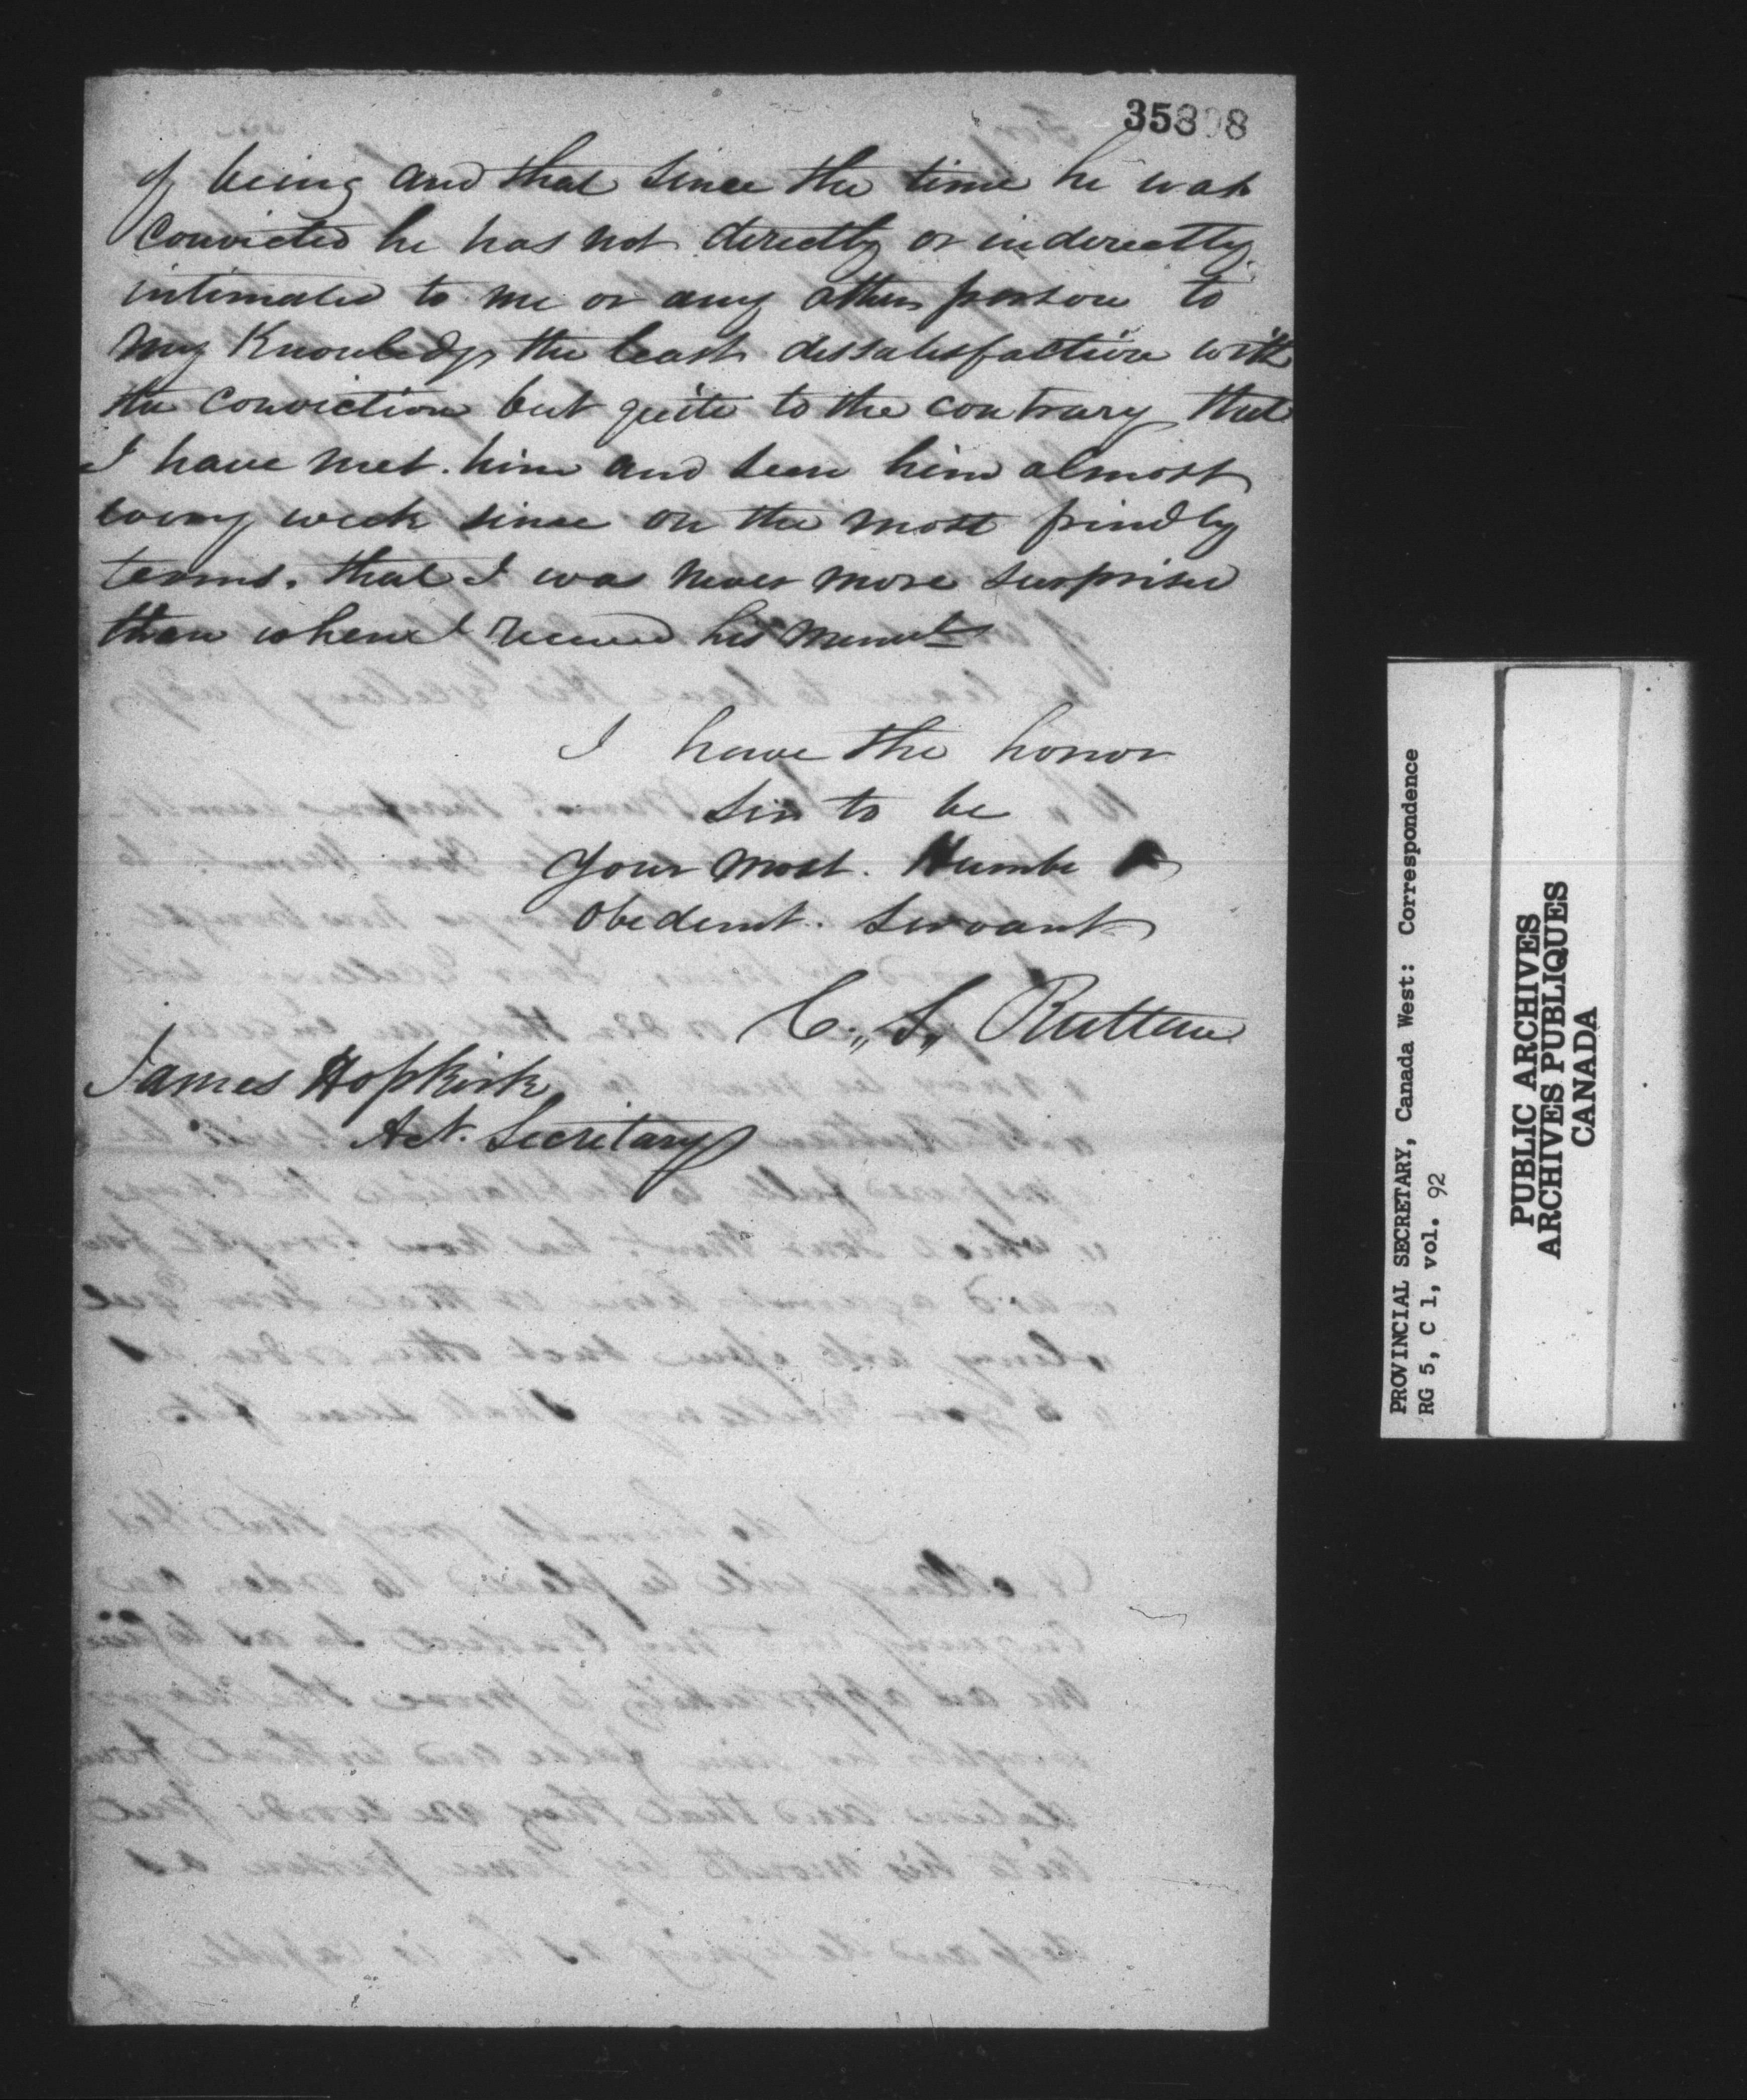 35808
of being and that since the time he was
convicted he has not directly or inderectly
intimated to me or any other person to
my Knowledge the least dissatisfaction with
the conviction but quite to the contrary that
I have met him and seen him almost
every week since on the most frindly
terms. that I was never more surprised
than when I received his
I have the honor
Sir to be
Your most Humbe &
Obedient Servant
C. S. Ruttan
James Hopkirk
Act. Secretary
PROVINCIAL SECRETARY, Canada West: Correspondence
RG 5, C 1, vol. 92
PUBLIC ARCHIVES
ARCHIVES PUBLIQUES
CANADA